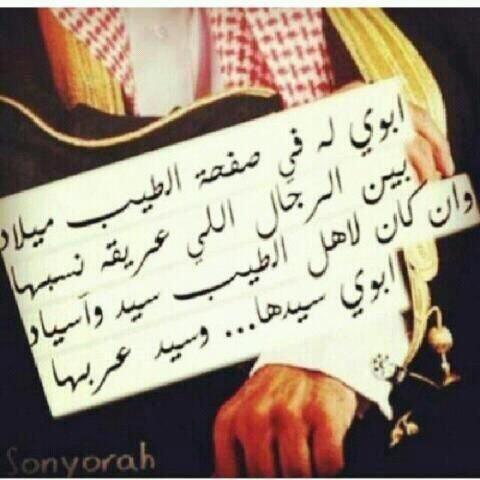 ابوي له في صفحة الطيب ميلاد
بين الرجال اللي عريقه نسبها
وان كان لاهل الطيب سيد وآسياد
ابوي سيدها... وسيد عربها
Sonyorah